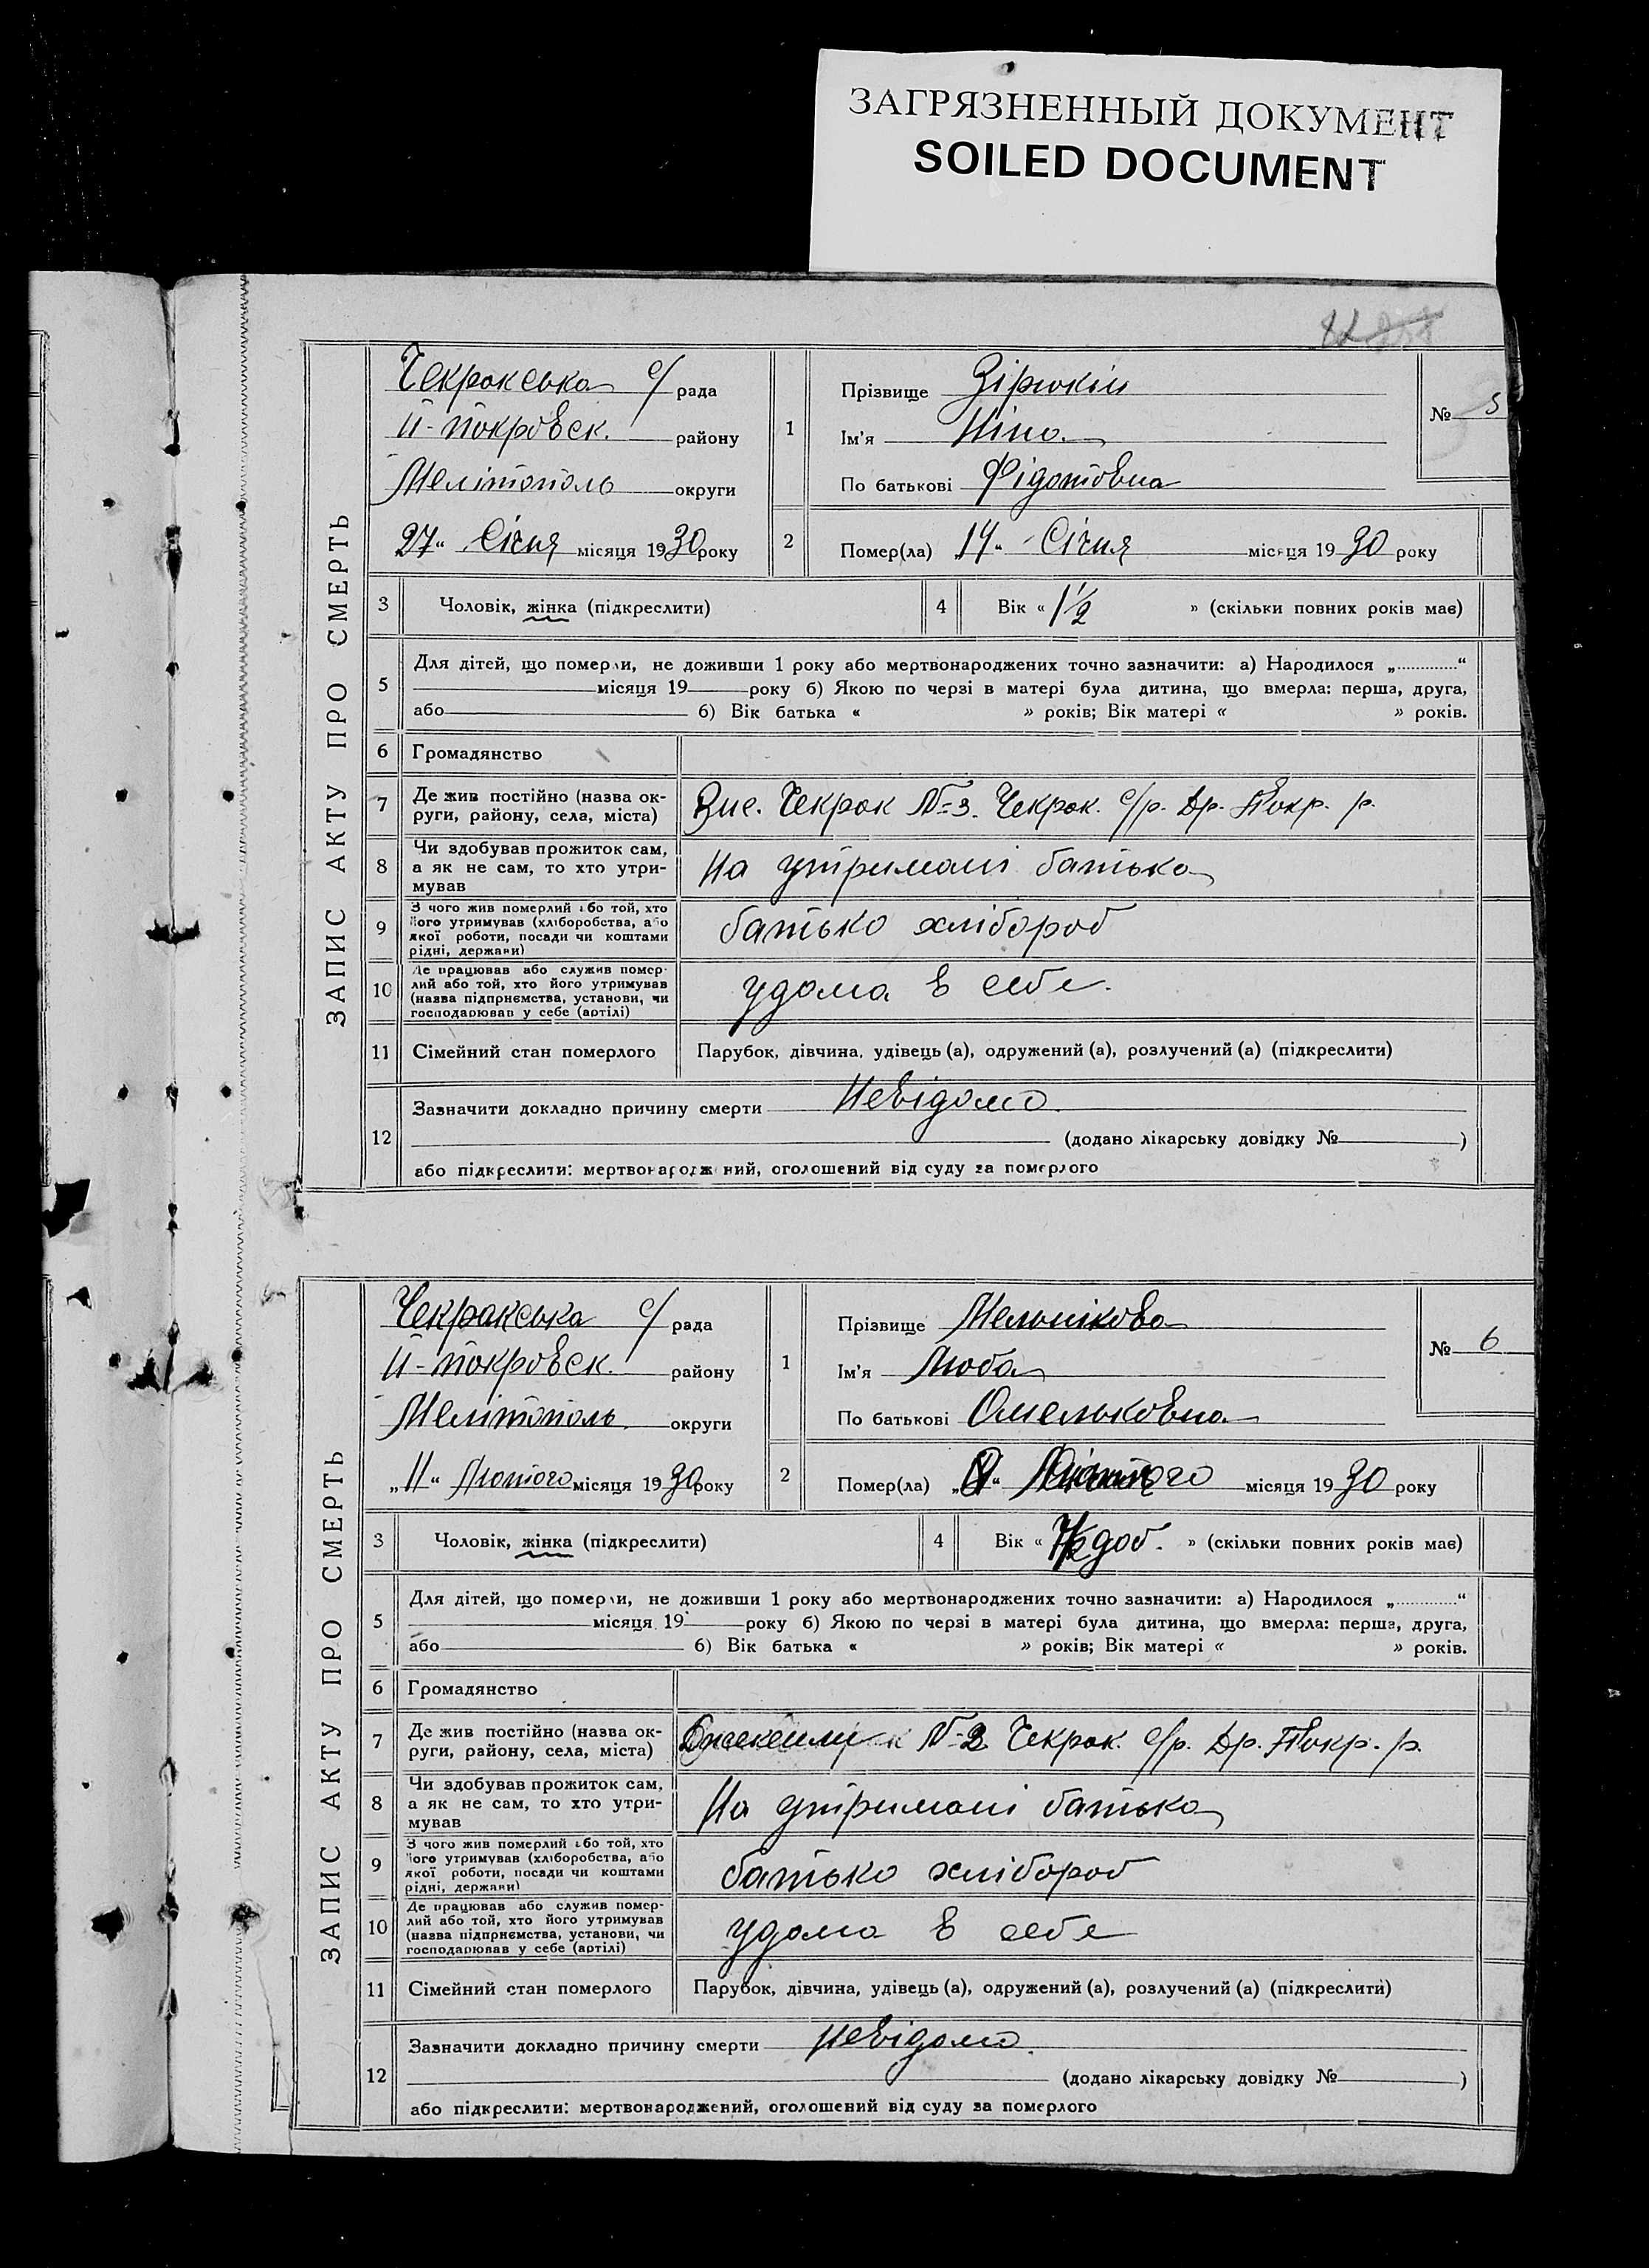 ЗАГРЯЗНЕННЫЙ ДОКУМЕНТ
SOILED DOCUMENT
ЗАПИС АКТУ ПРО СМЕРТЬ
Чекракська с/ рада
покровск. району
Мелітополь округи
27 „ Січня місяця 1930 року
1
Прізвище
Ім'я Ніна
По батькові Фідотовна
№ 5
2
Помер(ла) 14 „ Січня місяця 1930 року
3 Чоловік, жінка (підкреслити)
4 Вік « 1½ » (скільки повних років має)
5 Для дітей, що померли, не доживши 1 року або мертвонароджених точно зазначити: а) Народилося „............“
місяця 19 року б) Якою по черзі в матері була дитина, що вмерла: перша, друга,
або б) Вік батька « » років; Вік матері « » років.
6 Громадянство
7 Де жив постійно (назва ок-
руги, району, села, міста)
Чекрак №3. Чекрак. с/р. Др. Покр. р.
8 Чи здобував прожиток сам,
а як не сам, то хто утри-
мував
На утримані батька
9 З чого жив померлий або той, хто
його утримував (хліборобства, або
якої роботи, посади чи коштами
рідні, держави)
батько хлібороб
10 Де працював або служив помер-
лий або той, хто його утримував
(назва підприємства, установи, чи
господарював у себе (артілі)
удома в себе.
11 Сімейний стан померлого
Парубок, дівчина, удівець (а), одружений (а), розлучений (а) (підкреслити)
12 Зазначити докладно причину смерти Невідомо.
(додано лікарську довідку № )
або підкреслити: мертвонароджений, оголошений від суду за померлого
ЗАПИС АКТУ ПРО СМЕРТЬ
Чекракська с/ рада
покровск. району
Мелітополь. округи
„ 11 „ Лютого місяця 1930 року
1
Прізвище Мельнікова
Ім'я Люба
По батькові Омельковна
№ 6
2
Помер(ла) Лютого місяця 1930 року
3 Чоловік, жінка (підкреслити)
4 Вік « доб. » (скільки повних років має)
5 Для дітей, що померли, не доживши 1 року або мертвонароджених точно зазначити: а) Народилося „............“
місяця 19 року б) Якою по черзі в матері була дитина, що вмерла: перша, друга,
або б) Вік батька « » років; Вік матері « » років.
6 Громадянство
7 Де жив постійно (назва ок-
руги, району, села, міста)
№2 Чекрак. с/р. Др. Покр. р.
8 Чи здобував прожиток сам,
а як не сам, то хто утри-
мував
На утримані батька
9 З чого жив померлий або той, хто
його утримував (хліборобства, або
якої роботи, посади чи коштами
рідні, держави)
батько хлібороб
10 Де працював або служив помер-
лий або той, хто його утримував
(назва підприємства, установи, чи
господарював у себе (артілі)
удома в себе
11 Сімейний стан померлого
Парубок, дівчина, удівець (а), одружений (а), розлучений (а) (підкреслити)
12 Зазначити докладно причину смерти невідомо.
(додано лікарську довідку № )
або підкреслити: мертвонароджений, оголошений від суду за померлого